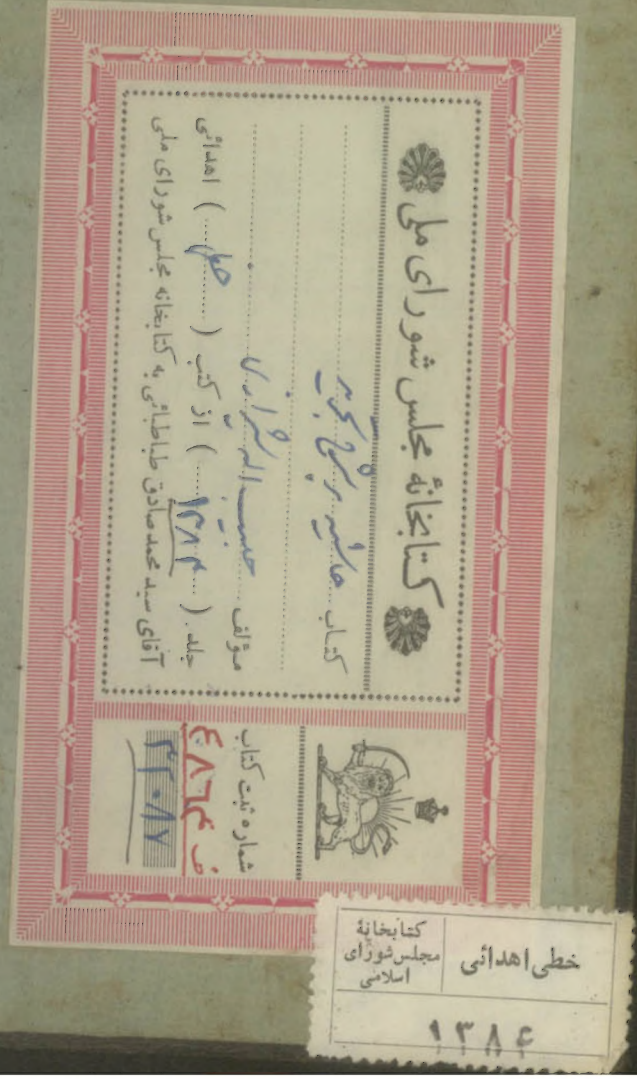 کتابخانهٔ مجلس شورای ملی
کتاب حاشیه بر شرح تجرید
مؤلف حبیب الله شیرازی
جلد ( ۱۳۸۴ ) از کتب ( خطی ) اهدائی
آقای سید محمدصادق طباطبائی به کتابخانه مجلس شورای ملی
شماره ثبت کتاب
۲۲۰۸۷
کتابخانهٔ
مجلس شورای
اسلامی
خطی اهدائی
۱۳۸۴